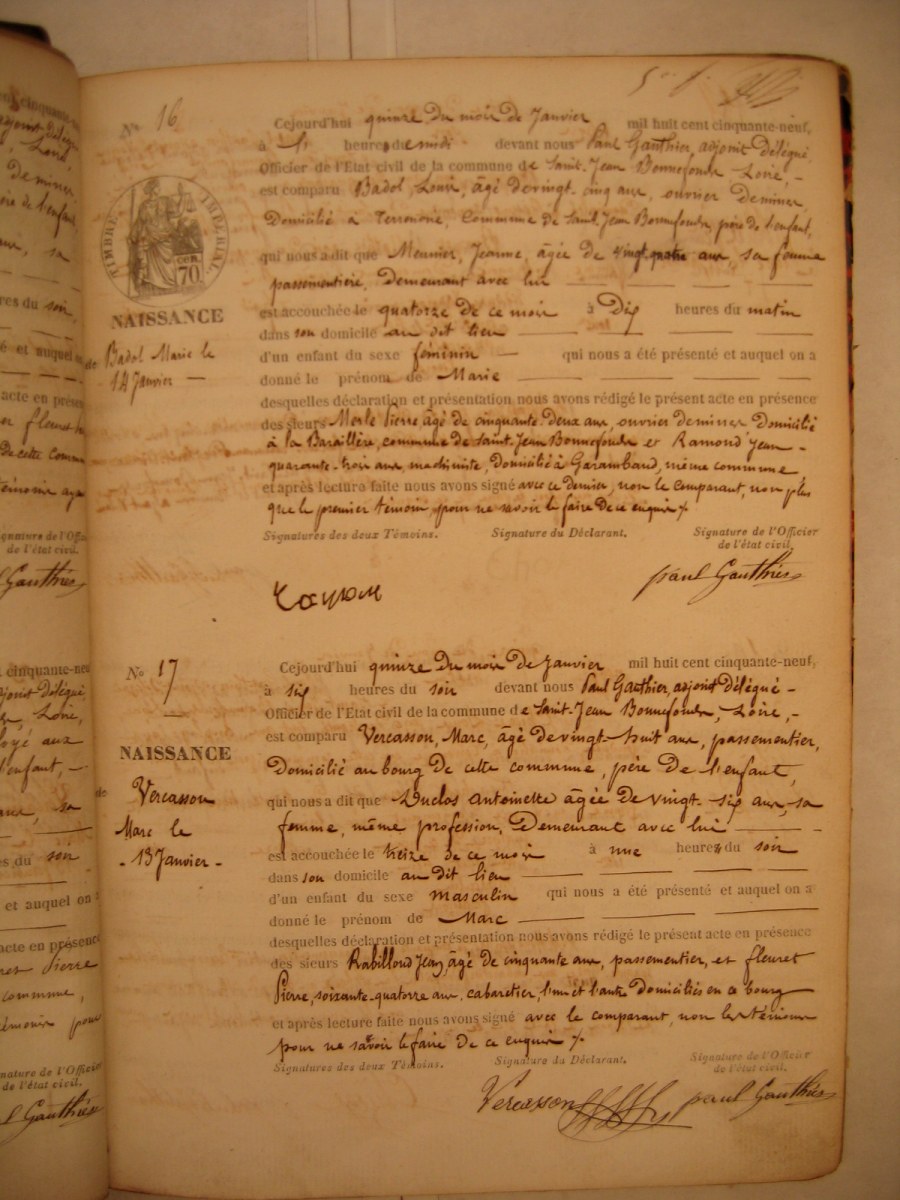 No 16
Cejourd'hui quinze du mois de Janvier mil huit cent cinquante-neuf,
à heures du midi devant nous Paul Gauthier, adjoint délégué
Officier de l'Etat civil de la commune de Saint-Jean Bonnefonds, Loire, -
est comparu Badol Louis, âgé de vingt-cinq ans, ouvrier de mines
Domicilié à Terrenoire, Commune de Saint-Jean Bonnefonds, père de l'enfant,
qui nous a dit que Meunier, Jeanne, âgée de vingt-quatre ans, sa femme
passementière, demeurant avec lui
est accouchée le quatorze de ce mois à Dix heures du matin
dans son domicile au dit lieu
d'un enfant du sexe féminin qui nous a été présenté et auquel on a
donné le prénom de Marie
desquelles déclaration et présentation nous avons rédigé le présent acte en présence
des sieurs Merle Pierre âgé de cinquante-deux ans, ouvrier de mines Domicilié
à la Baraillère, commune de Saint-Jean Bonnefonds et Ramond Jean -
quarante-trois ans machiniste, Domicilié à Garambaud, même commune
et après lecture faite nous avons signé avec ce dernier, non le comparant, non plus
que le premier témoin, pour ne savoir le faire de ce enquis
Signatures des deux Témoins. Signature du Déclarant. Signature de l'Officier
de l'état civil.
Paul Gauthier
TIMBRE IMPERIAL
CEN. 70
NAISSANCE
de Badol Marie le
14 Janvier -
No 17
Cejourd'hui quinze du mois de Janvier mil huit cent cinquante-neuf,
à six heures du soir devant nous Paul Gauthier, adjoint délégué -
Officier de l'Etat civil de la commune de Saint-Jean Bonnefonds, Loire, -
est comparu Vercasson, Marc, âgé de vingt-huit ans, passementier,
Domicilié au bourg de cette commune, père de l'enfant,
qui nous a dit que Duclos Antoinette âgée de vingt-six ans, sa
femme, même profession, Demeurant avec lui
est accouchée le treize de ce mois à une heure du soir
dans son domicile au dit lieu
d'un enfant du sexe masculin qui nous a été présenté et auquel on a
donné le prénom de Marc
desquelles déclaration et présentation nous avons rédigé le présent acte en présence
des sieurs Rabilloud Jean, âgé de cinquante ans, passementier, et fleuret
Pierre, soixante-quatorze ans, cabaretier, l'un et l'autre Domiciliés en ce bourg
et après lecture faite nous avons signé avec le comparant, non les témoins
pour ne savoir le faire de ce enquis
Signatures des deux Témoins. Signature du Déclarant. Signature de l'Officier
de l'état civil.
Vercasson Paul Gauthier
NAISSANCE
de Vercasson
Marc le
- 13 Janvier -